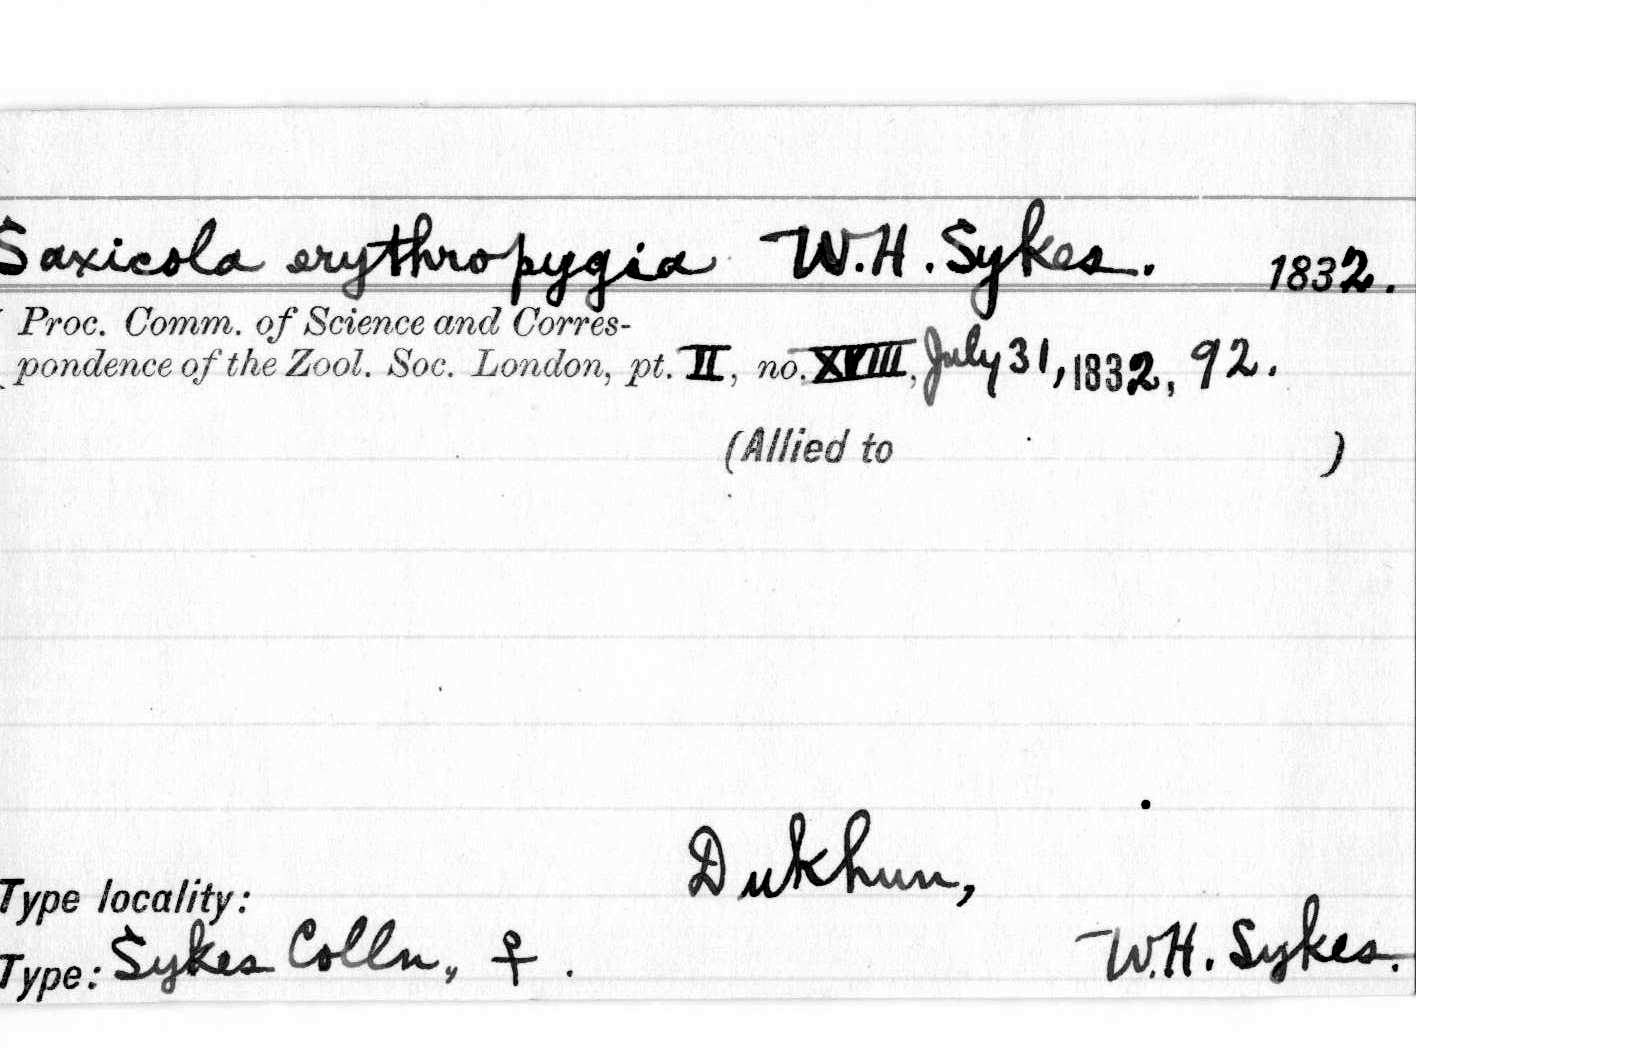 Saxicola erythropygia W.H. Sykes. 1832.
Proc. Comm. of Science and Corres-
pondence of the Zool. Soc. London, pt. II, no. XVIII, July 31, 1832, 92.
(Allied to )
Dukhun,
Type locality:
Type: Sykes Colln., ♀. W.H. Sykes.